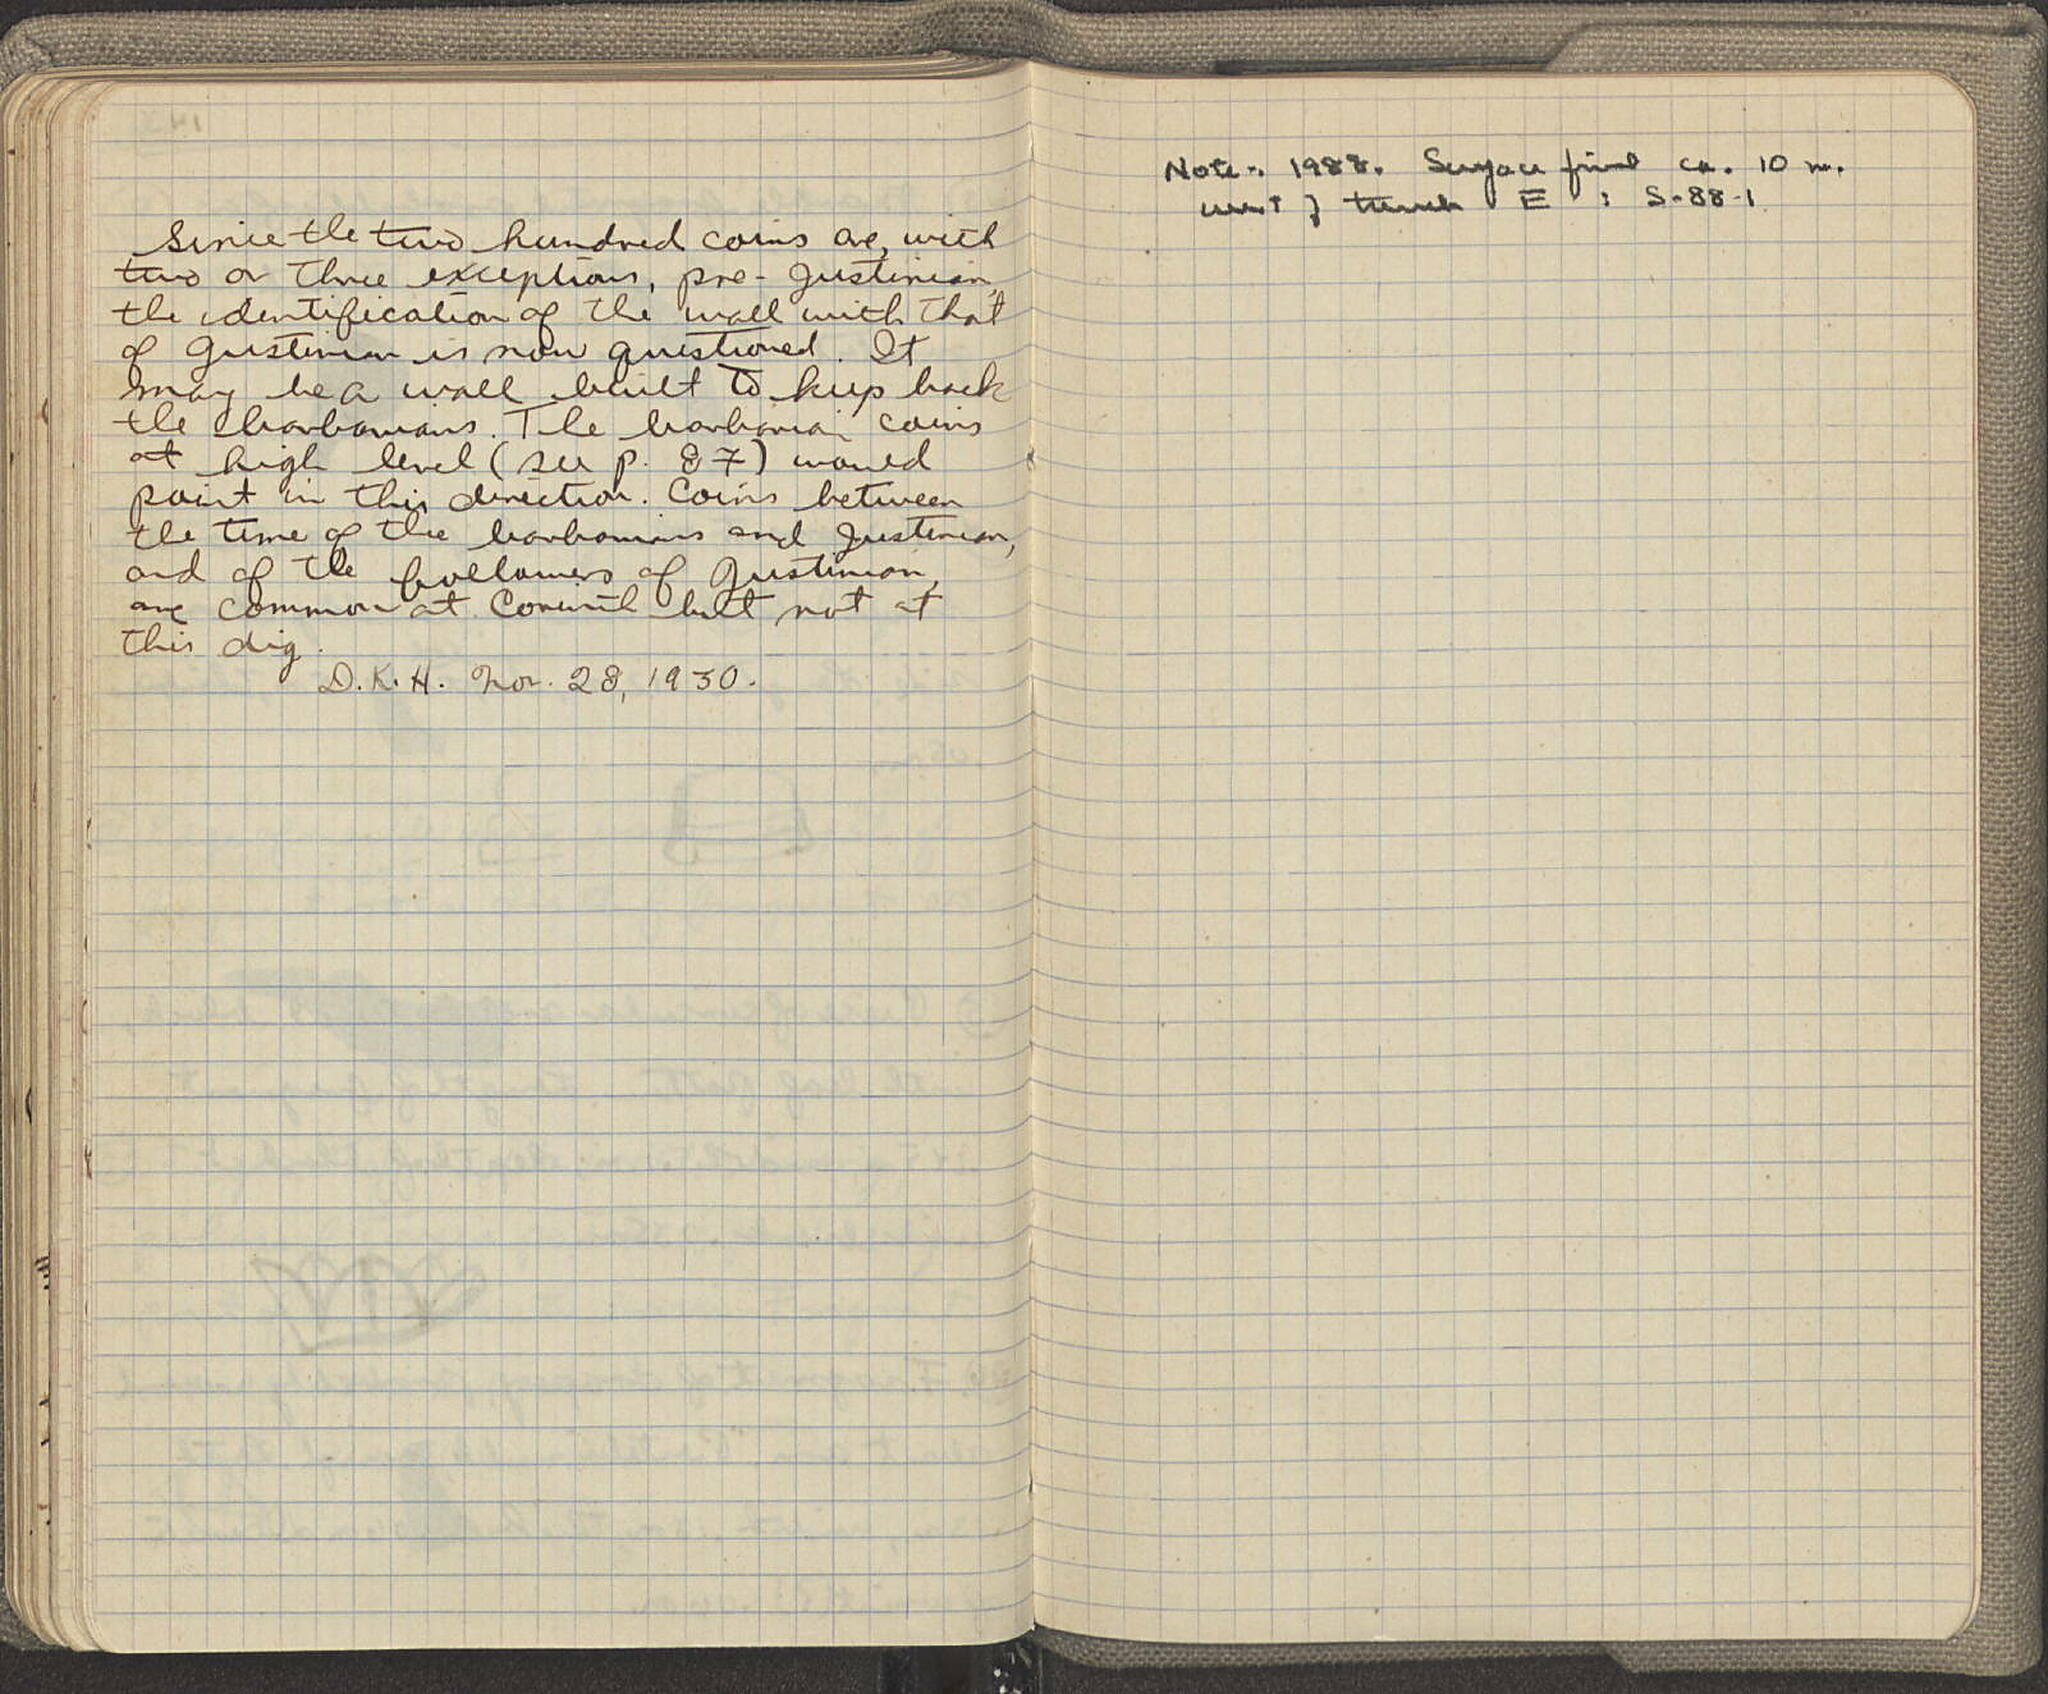 Since the two hundred coins are, with
two or three exceptions, pre-Justinian,
the identification of the wall with that
of Justinian is now questioned. It
may be a wall built to keep back
the barbarians. The barbarian coins
at high level (see p. 87) would
point in this direction. Coins between
the time of the barbarians and Justinian,
and of the followers of Justinian,
are common at Corinth but not at
this dig.
D.K.H. Nov. 28, 1930.
Note:. 1988. Surface find ca. 10 m.
west of trench E : S-88-1